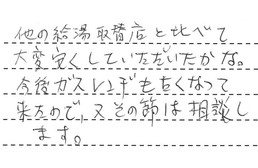 他の給湯取替店と比べて
大変安くしていただいたかな。
今後ガスレンヂも古くなって
来たので、又その節は相談し
ます。